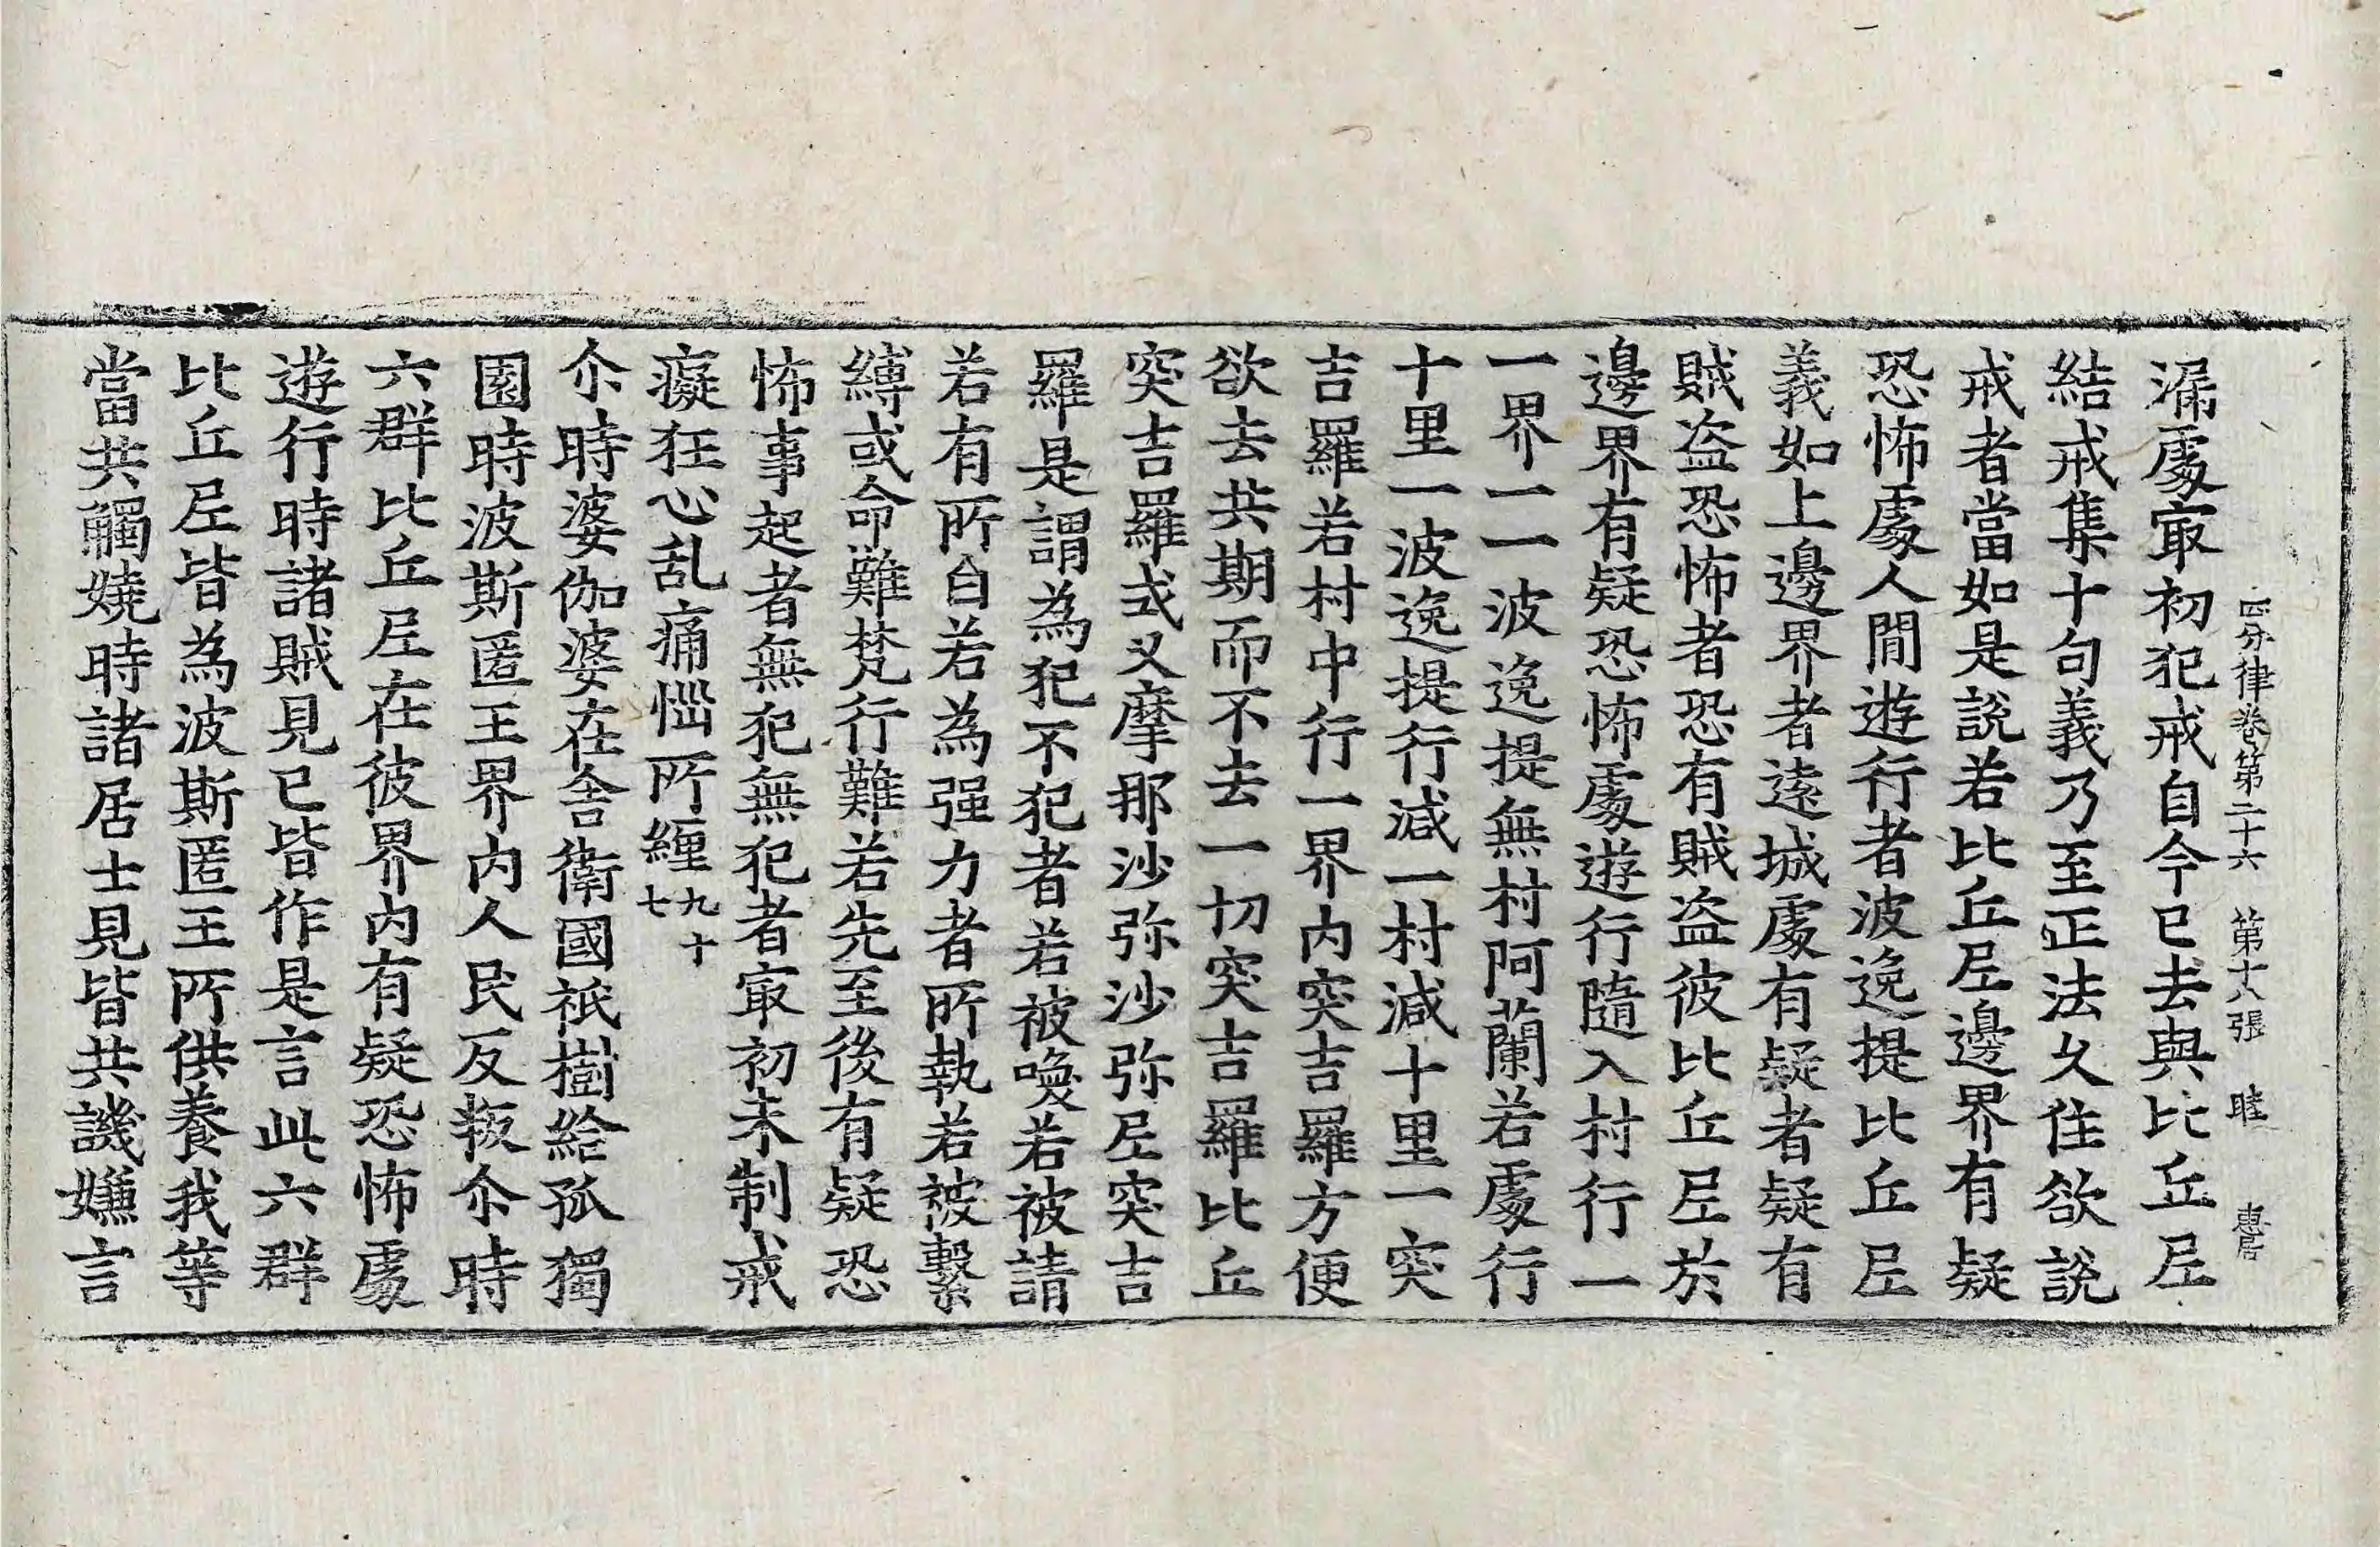 四分律卷第二十六　第十八張　睦　惠居
漏處冣初犯戒自今已去與比丘尼
結戒集十句義乃至正法久住欲說
戒者當如是說若比丘尼邊界有疑
恐怖處人間遊行者波逸提比丘尼
義如上邊界者遠城處有疑者疑有
賊盜恐怖者恐有賊盜彼比丘尼於
邊界有疑恐怖處遊行隨入村行一
一界一一波逸提無村阿蘭若處行
十里一波逸提行減一村減十里一突
吉羅若村中行一界內突吉羅方便
欲去共期而不去一切突吉羅比丘
突吉羅式叉摩那沙弥沙弥尼突吉
羅是謂為犯不犯者若被喚若被請
若有所白若為强力者所執若被繫
縛或命難梵行難若先至後有疑恐
怖事起者無犯無犯者冣初未制戒
癡狂心乱痛惱所纏九十七
尒時婆伽婆在舍衛國祇樹給孤獨
園時波斯匿王界內人民反叛尒時
六群比丘尼在彼界內有疑恐怖處
遊行時諸賊見已皆作是言此六群
比丘尼皆為波斯匿王所供養我等
當共觸嬈時諸居士見皆共譏嫌言